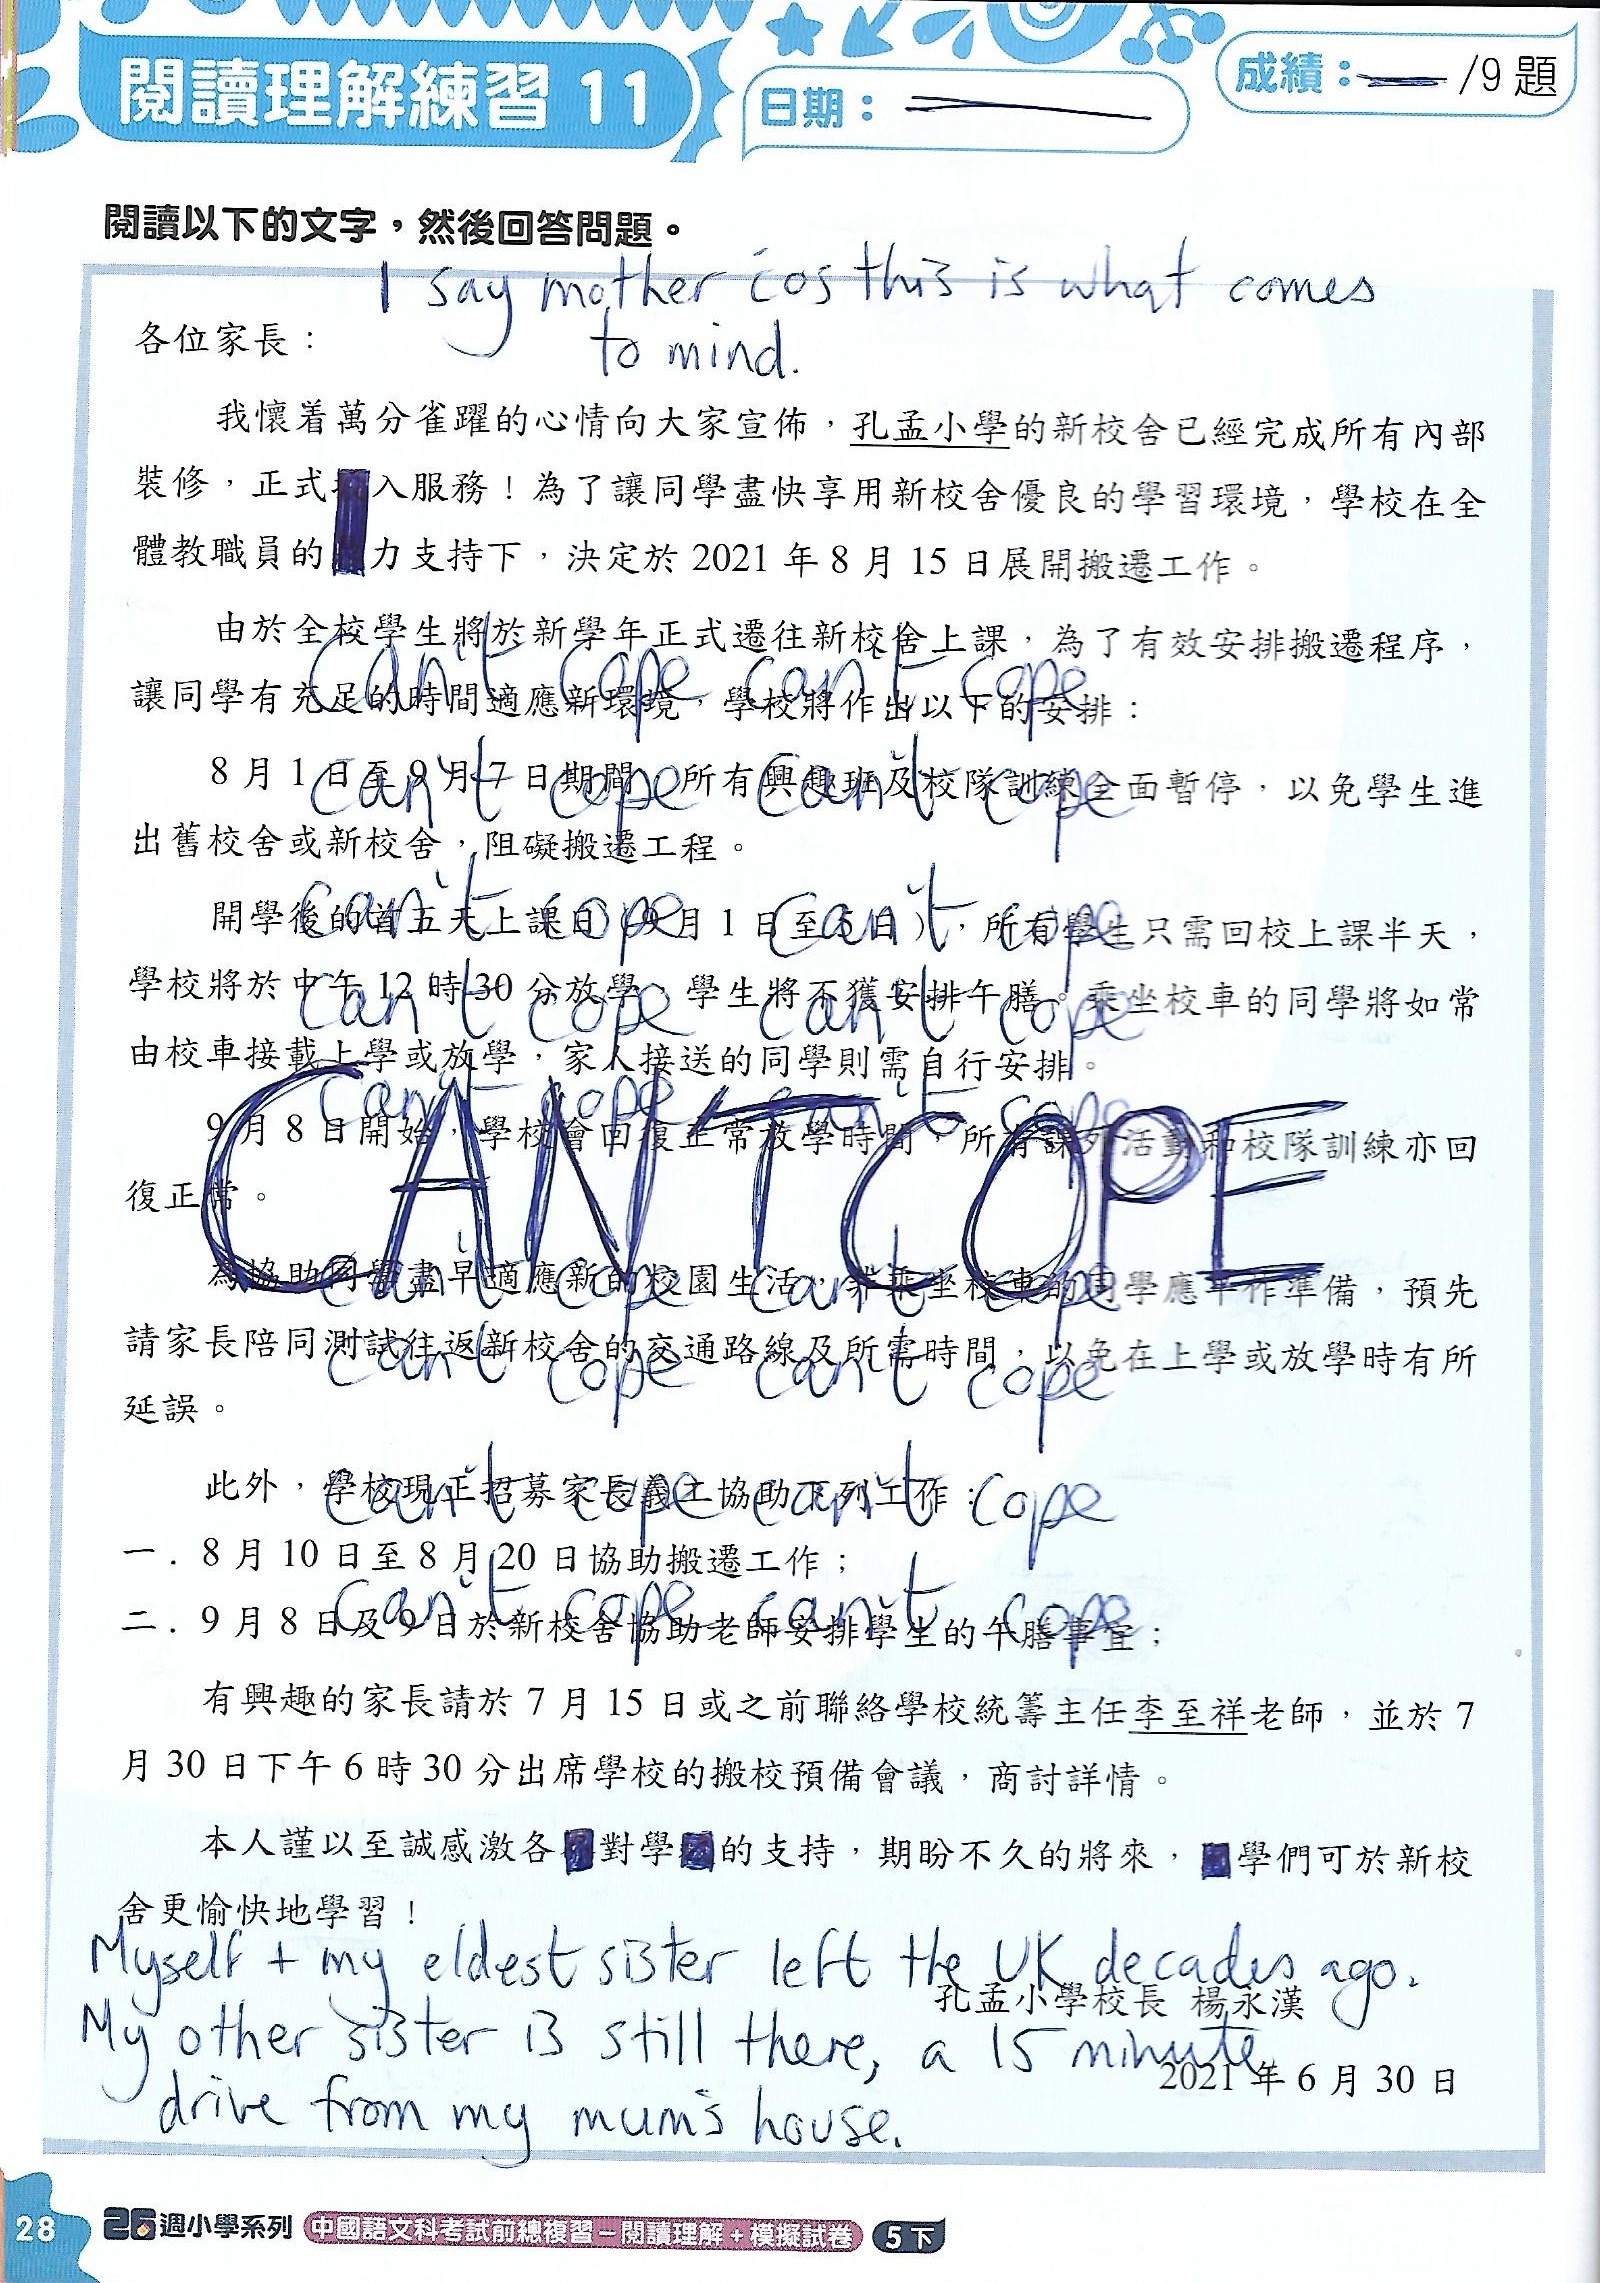 閱讀理解練習 11
日期：
成績： /9 題
閱讀以下的文字，然後回答問題。
I say mother cos this is what comes
to mind.
各位家長：
我懷着萬分雀躍的心情向大家宣佈，孔孟小學的新校舍已經完成所有內部
裝修，正式入服務！為了讓同學盡快享用新校舍優良的學習環境，學校在全
體教職員的力支持下，決定於 2021 年 8 月 15 日展開搬遷工作。
由於全校學生將於新學年正式遷往新校舍上課，為了有效安排搬遷程序，
can't cope can't cope
讓同學有充足的時間適應新環境，學校將作出以下的安排：
8 月 1 日至 9 月 7 日期間，所有興趣班及校隊訓練全面暫停，以免學生進
can't cope can't cope
出舊校舍或新校舍，阻礙搬遷工程。
開學後的首五天上課日（9 月 1 日至 5 日），所有學生只需回校上課半天，
can't cope can't cope
學校將於中午 12 時 30 分放學，學生將不獲安排午膳。乘坐校車的同學將如常
can't cope can't cope
由校車接載上學或放學，家人接送的同學則需自行安排。
can't cope can't cope
9 月 8 日開始，學校會回復正常放學時間，所有課外活動和校隊訓練亦回
CAN'T COPE
復正常。
為協助同學盡早適應新的校園生活，非乘坐校車的同學應早作準備，預先
can't cope can't cope
請家長陪同測試往返新校舍的交通路線及所需時間，以免在上學或放學時有所
can't cope can't cope
延誤。
此外，學校現正招募家長義工協助下列工作：
can't cope can't cope
一．8 月 10 日至 8 月 20 日協助搬遷工作；
二．9 月 8 日及 9 日於新校舍協助老師安排學生的午膳事宜；
can't cope can't cope
有興趣的家長請於 7 月 15 日或之前聯絡學校統籌主任李至祥老師，並於 7
月 30 日下午 6 時 30 分出席學校的搬校預備會議，商討詳情。
本人謹以至誠感激各對學的支持，期盼不久的將來，學們可於新校
舍更愉快地學習！
Myself + my eldest sister left the UK decades ago.
孔孟小學校長 楊永漢
My other sister is still there, a 15 minute
2021 年 6 月 30 日
drive from my mum's house.
28
26週小學系列 中國語文科考試前總複習－閱讀理解＋模擬試卷 5下